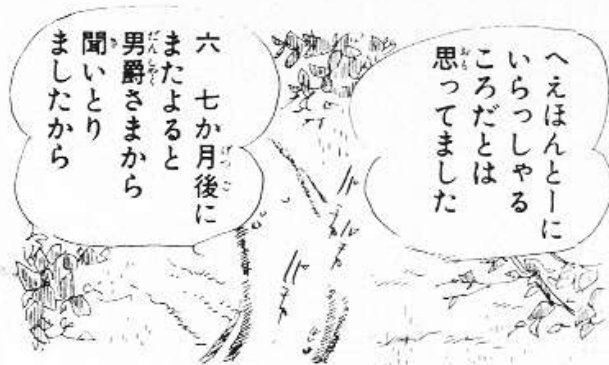 へえほんとーに
いらっしゃる
ころだとは
思ってました
六 七か月後に
またよると
男爵さまから
聞いとり
ましたから